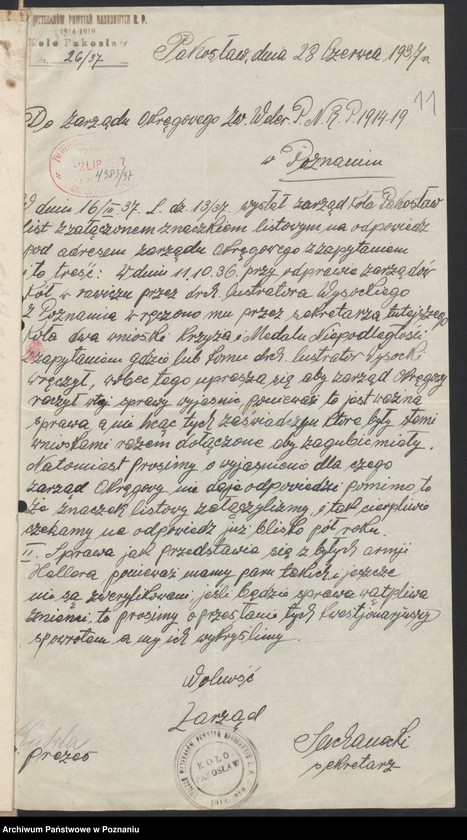 WETERANÓW POWSTAŃ NARODOWYCH R. P.
1914-1919
Koło Pakosław
26/37
Pakosław, dnia 28 Czerwca 1937 r.
11
Do Zarządu Okręgowego Zw. Weter. P. N. R. P. 1914-19
w Poznaniu
4383/37
W dniu 16/III 37. L. dz. 13/37. wysłał zarząd Koła Pakosław
list z załączonem znaczkiem listowym na odpowiedz
pod adresem zarządu Okręgowego z zapytaniem
i to treść: w dniu 11.10.36. przy odprawie zarządów
Kół w rawiczu przez drh. lustratora Wysockiego
z Poznania wręczono mu przez sekretarza tutejszego
Koła dwa wnioski Krzyża i Medalu Niepodległości
z zapytaniem gdzie lub komu drh. lustrator Wysocki
wręczył, wobec tego uprasza się aby zarząd Okręgowy
raczył wtej sprawy wyjasnic ponieważ to jest ważna
sprawa a nie hcąc tych zaświadczyń które były stemi
wnioskami razem dołączone aby zagubić miały.
Natomiast prosimy o wyjaśnienie dla czego
zarząd Okręgowy nie daje odpowiedzi pomimo to
że znaczek listowy załączylizmy, i tak cierpliwie
czekamy na odpowiedz już blisko pół roku.
II. Sprawa jak przedstawia się z byłych armji
Hallera ponieważ mamy paru takich i jeszcze
nie są zweryfikowani jeśli będzie sprawa wątpliwa
to prosimy o przesłanie tych kwestjonarjuszy
spowrotem a my ich wykryślimy.
Wolność
Zarząd
prezes
sekretarz
KOŁO
PAKOSŁAW
Archiwum Państwowe w Poznaniu